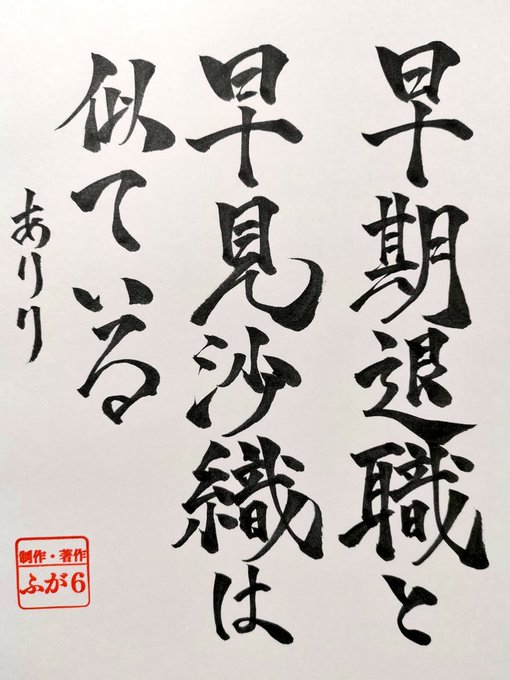 早期退職と
早見沙織は
似ている
ありり
制作・著作
ふが6